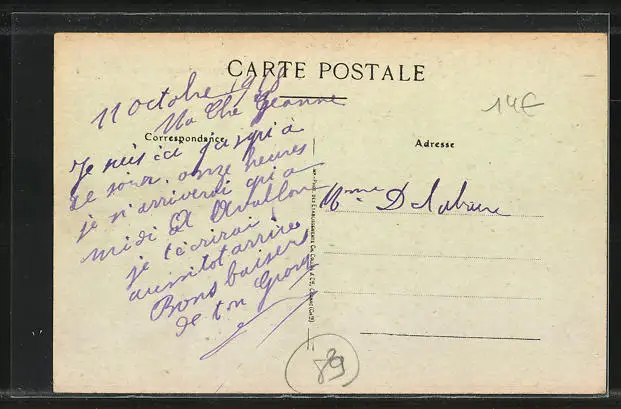 CARTE POSTALE
14€
11 octobre 1918
Ma Ché Jeanne
Correspondance
Adresse
Je suis ici jusqu'à
ce soir. onze heures
je n'arriverai qu'a
midi A Avallon
je t'écrirai
aussitot arrivé
Bons baisers
de ton Georg
Mme Delabure
89